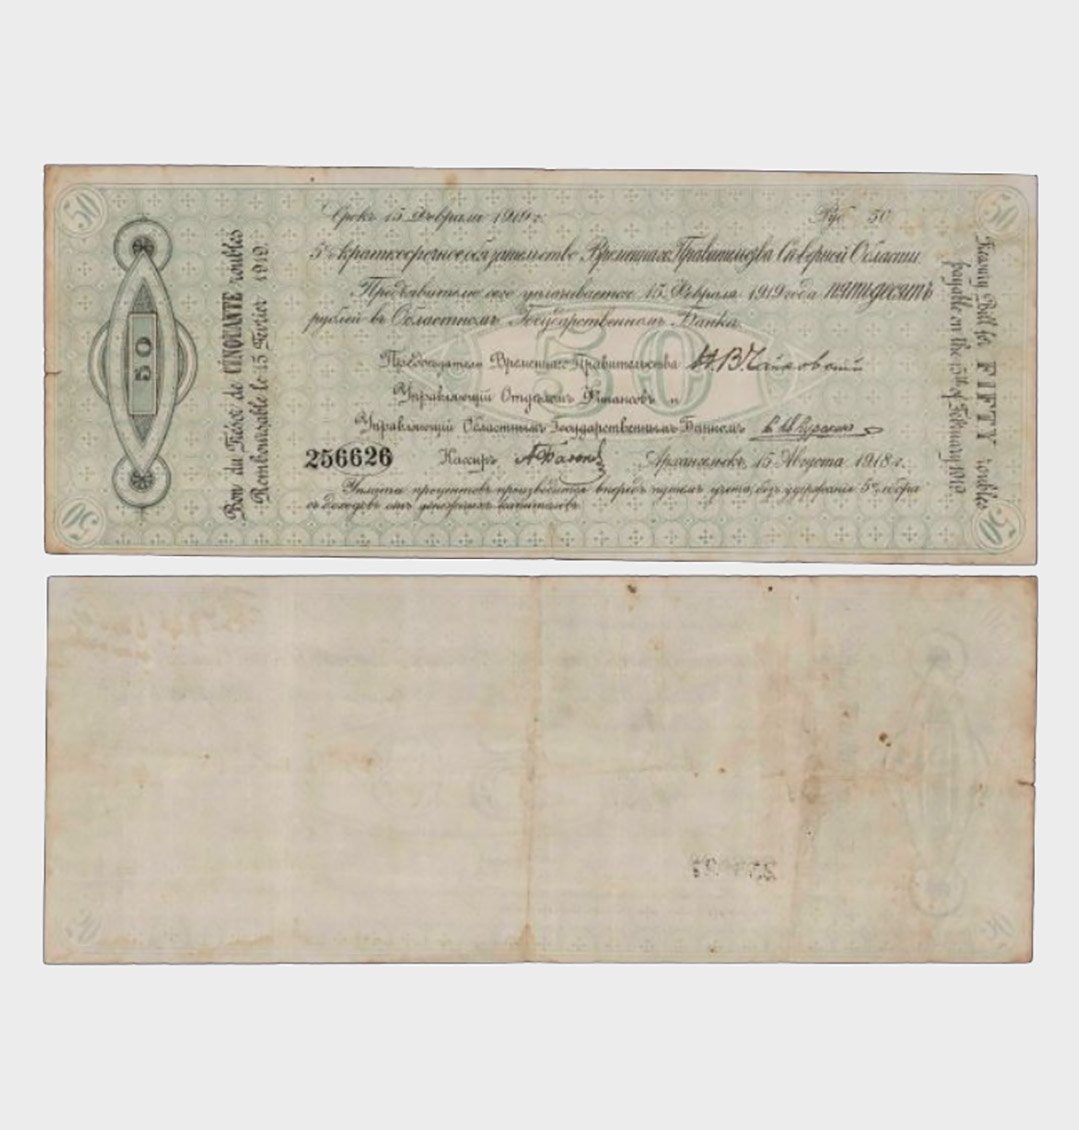 50
50
Срокъ 15 Февраля 1919 г.
Руб. 50
5% краткосрочное обязательство Временнаго Правительства Сѣверной Области
Предъявителю сего уплачивается 15 Февраля 1919 года пятьдесятъ
рублей въ Областномъ Государственномъ Банкѣ
50
Предсѣдатель Временнаго Правительства Н. В. Чайковскій
Управляющій Отдѣломъ Финансовъ и
Управляющій Областнымъ Государственнымъ Банкомъ
256626
Кассиръ
Архангельскъ, 15 Августа 1918 г.
Уплата процентовъ производится впередъ путемъ учета, безъ удержанія 5% сбора
съ доходовъ отъ денежныхъ капиталовъ.
50
Bon du Trésor de CINQUANTE roubles
Remboursable le 15 Février 1919.
Treasury Bill for FIFTY roubles
payable on the 15th of February 1919.
50
50